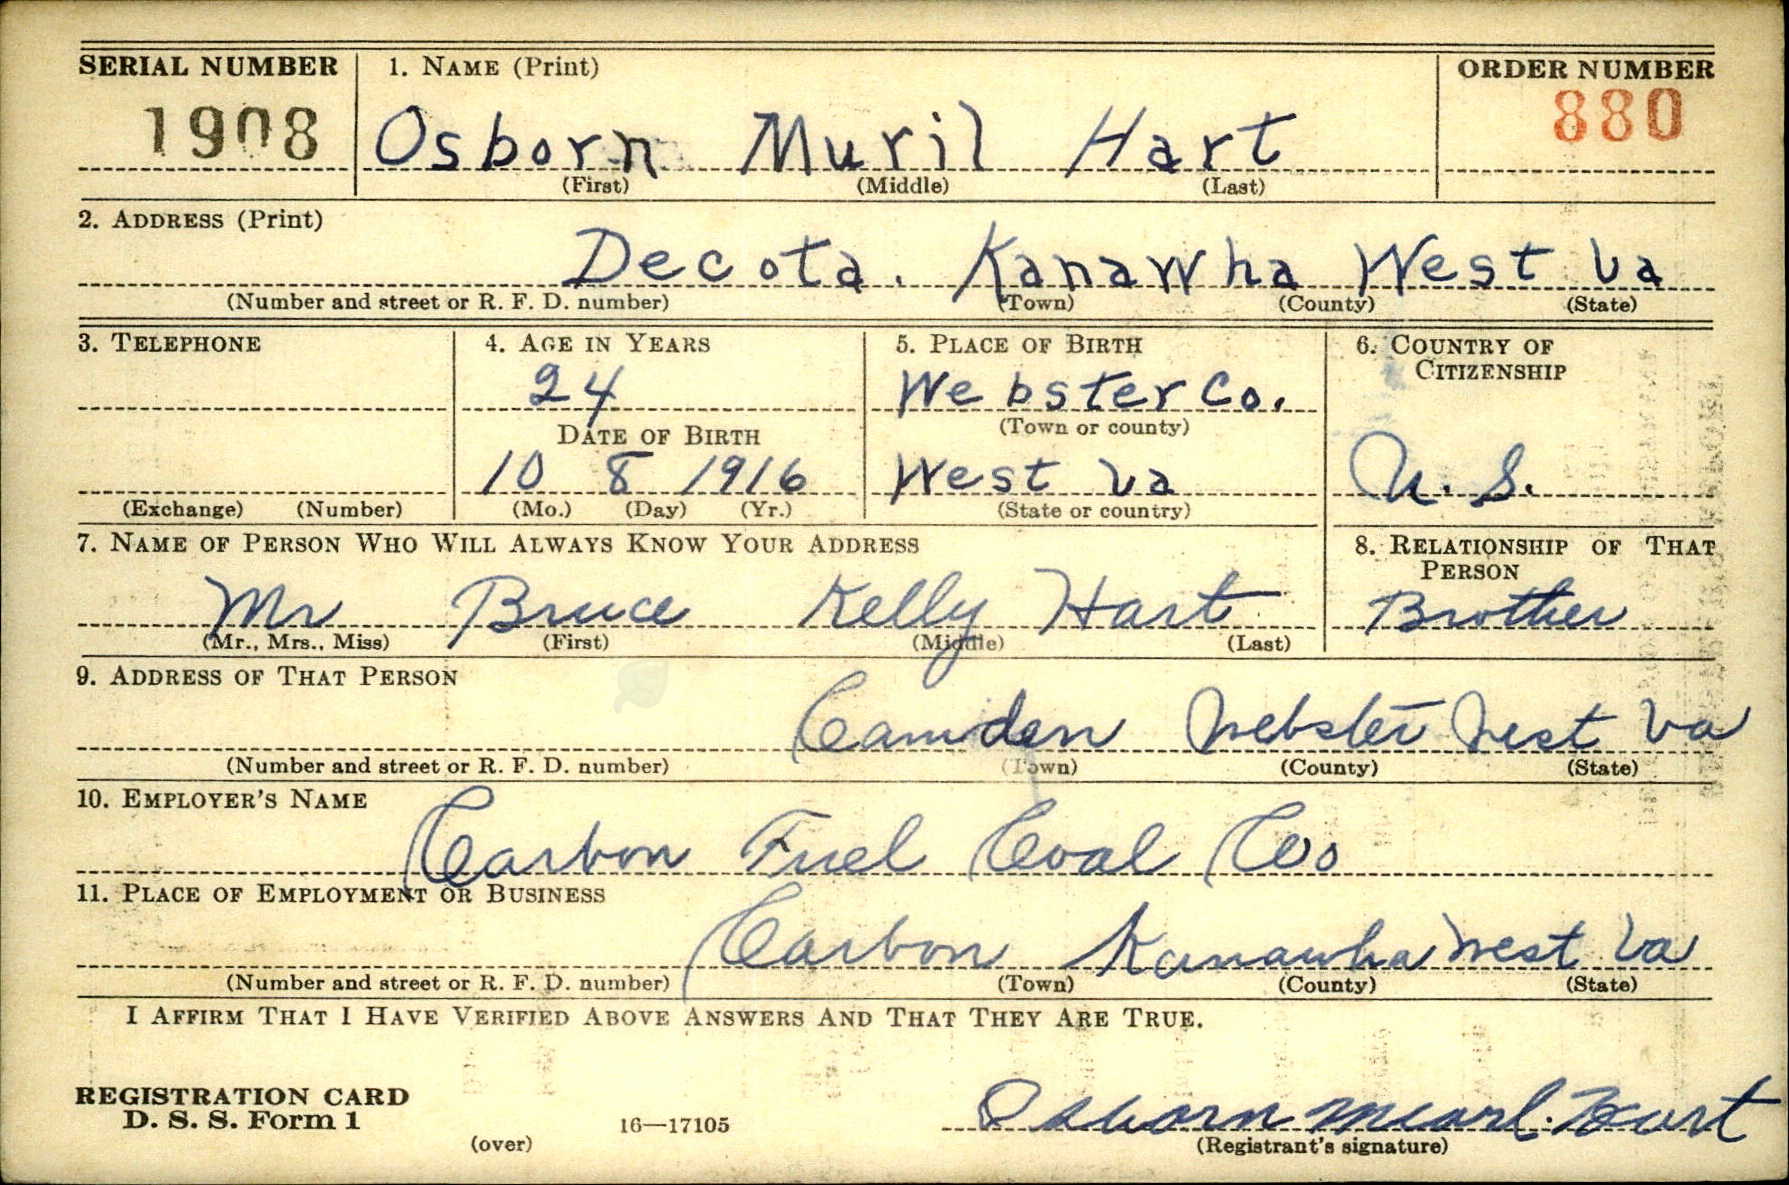 SERIAL NUMBER 1. NAME (Print) ORDER NUMBER
1908 Osborn Muril Hart 880
(First) (Middle) (Last)
2. ADDRESS (Print)
Decota. Kanawha West Va
(Number and street or R. F. D. number) (Town) (County) (State)
3. TELEPHONE 4. AGE IN YEARS 5. PLACE OF BIRTH 6. COUNTRY OF
CITIZENSHIP
24 Webster Co.
DATE OF BIRTH (Town or county)
10 8 1916 West Va U. S.
(Exchange) (Number) (Mo.) (Day) (Yr.) (State or country)
7. NAME OF PERSON WHO WILL ALWAYS KNOW YOUR ADDRESS 8. RELATIONSHIP OF THAT
PERSON
Mr Bruce Kelly Hart Brother
(Mr., Mrs., Miss) (First) (Middle) (Last)
9. ADDRESS OF THAT PERSON
Camden Webster West Va
(Number and street or R. F. D. number) (Town) (County) (State)
10. EMPLOYER'S NAME
Carbon Fuel Coal Co
11. PLACE OF EMPLOYMENT OR BUSINESS
Carbon Kanawha West Va
(Number and street or R. F. D. number) (Town) (County) (State)
I AFFIRM THAT I HAVE VERIFIED ABOVE ANSWERS AND THAT THEY ARE TRUE.
REGISTRATION CARD
D. S. S. Form 1 16—17105 Osborn Mearl. Hart
(over) (Registrant's signature)